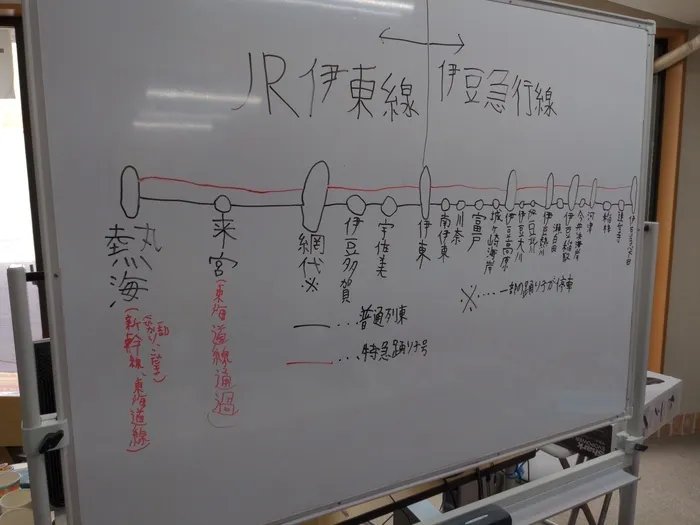 JR伊東線
伊豆急行線
熱海
(新幹線、東海道線)
来宮
(東海道線通過)
網代※
伊豆多賀
宇佐美
伊東
南伊東
川奈
富戸
城ヶ崎海岸
伊豆高原
伊豆大川
伊豆熱川
伊豆稲取
今井浜海岸
河津
稲梓
蓮台寺
※....一部の踊り子が停車
...普通列車
...特急踊り子号